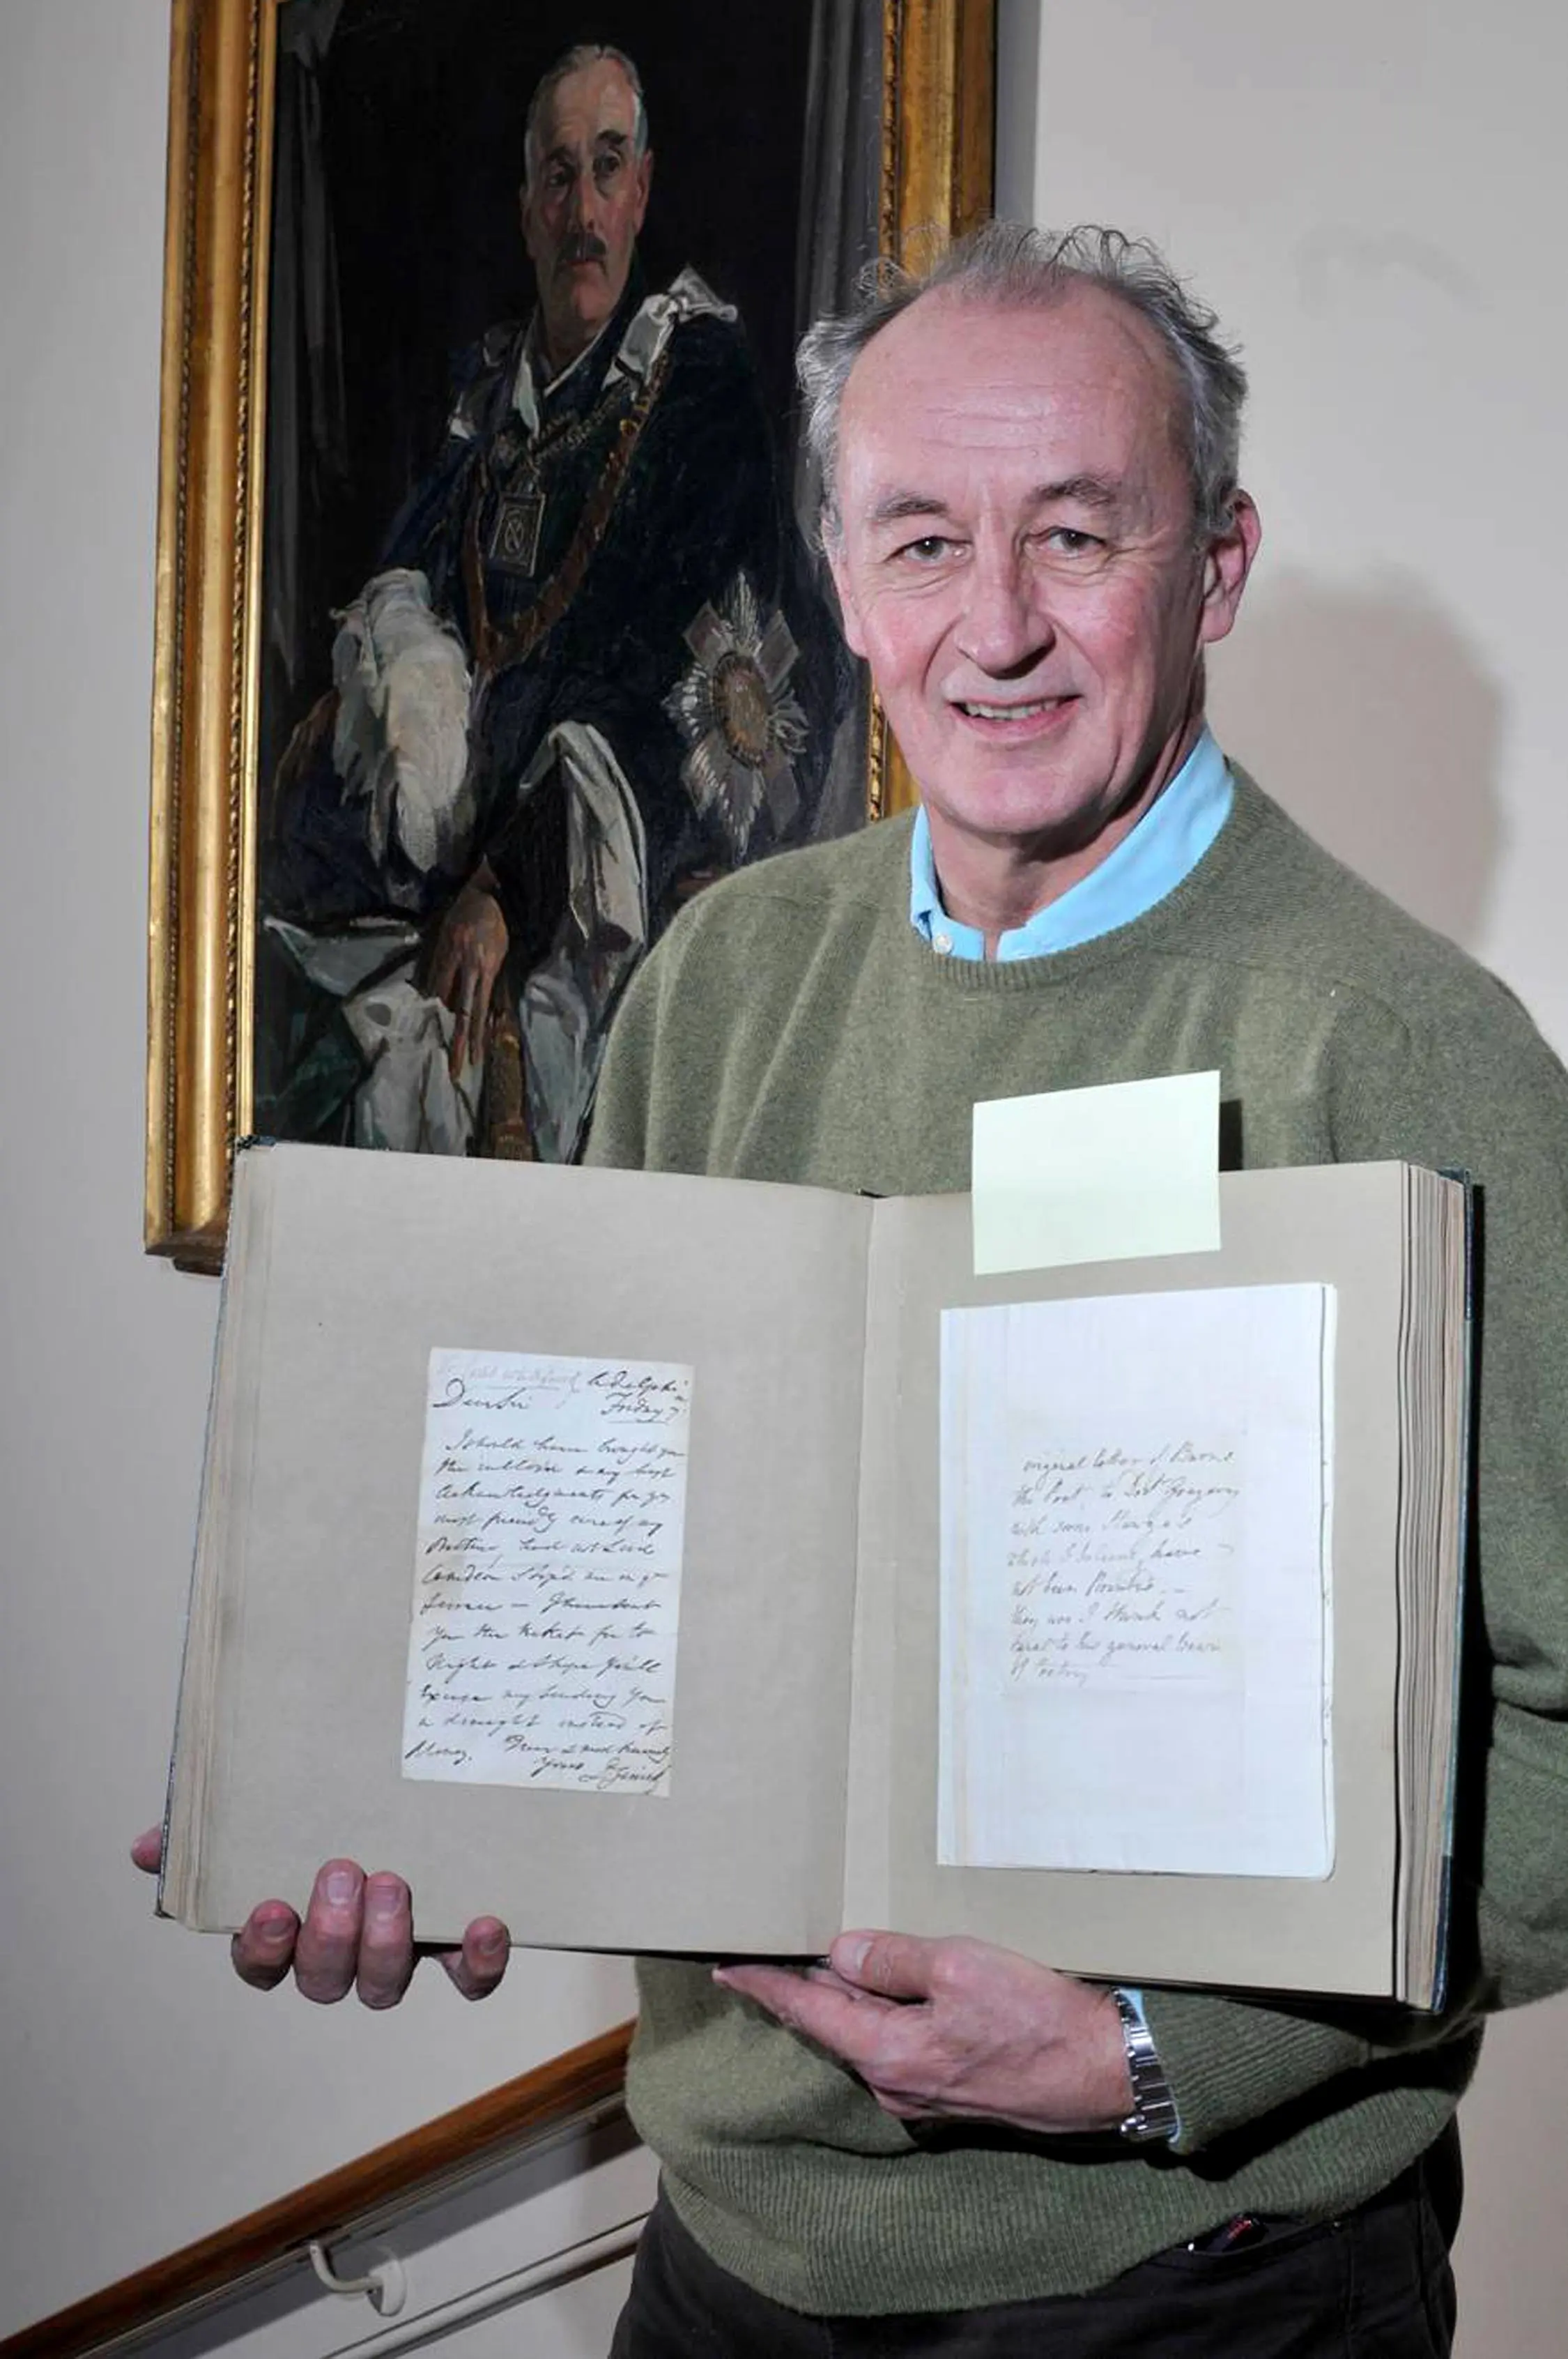 Adelphi
Dear Sir Friday 7
I should have brought you
the inclos'd & my best
Acknowledgments for yr
most friendly care of my
Brother, had not Lord
Camden stop'd me in yr
I have sent
You the tickets for to
Night & I hope You'll
Excuse my sending You
a draught instead of
Money.
Yours
original letter of Burns
the Poet, to Dr Gregory
with some Stanza's
which I believe, have
not been Printed. -
they are I think not
to his general
of Poetry